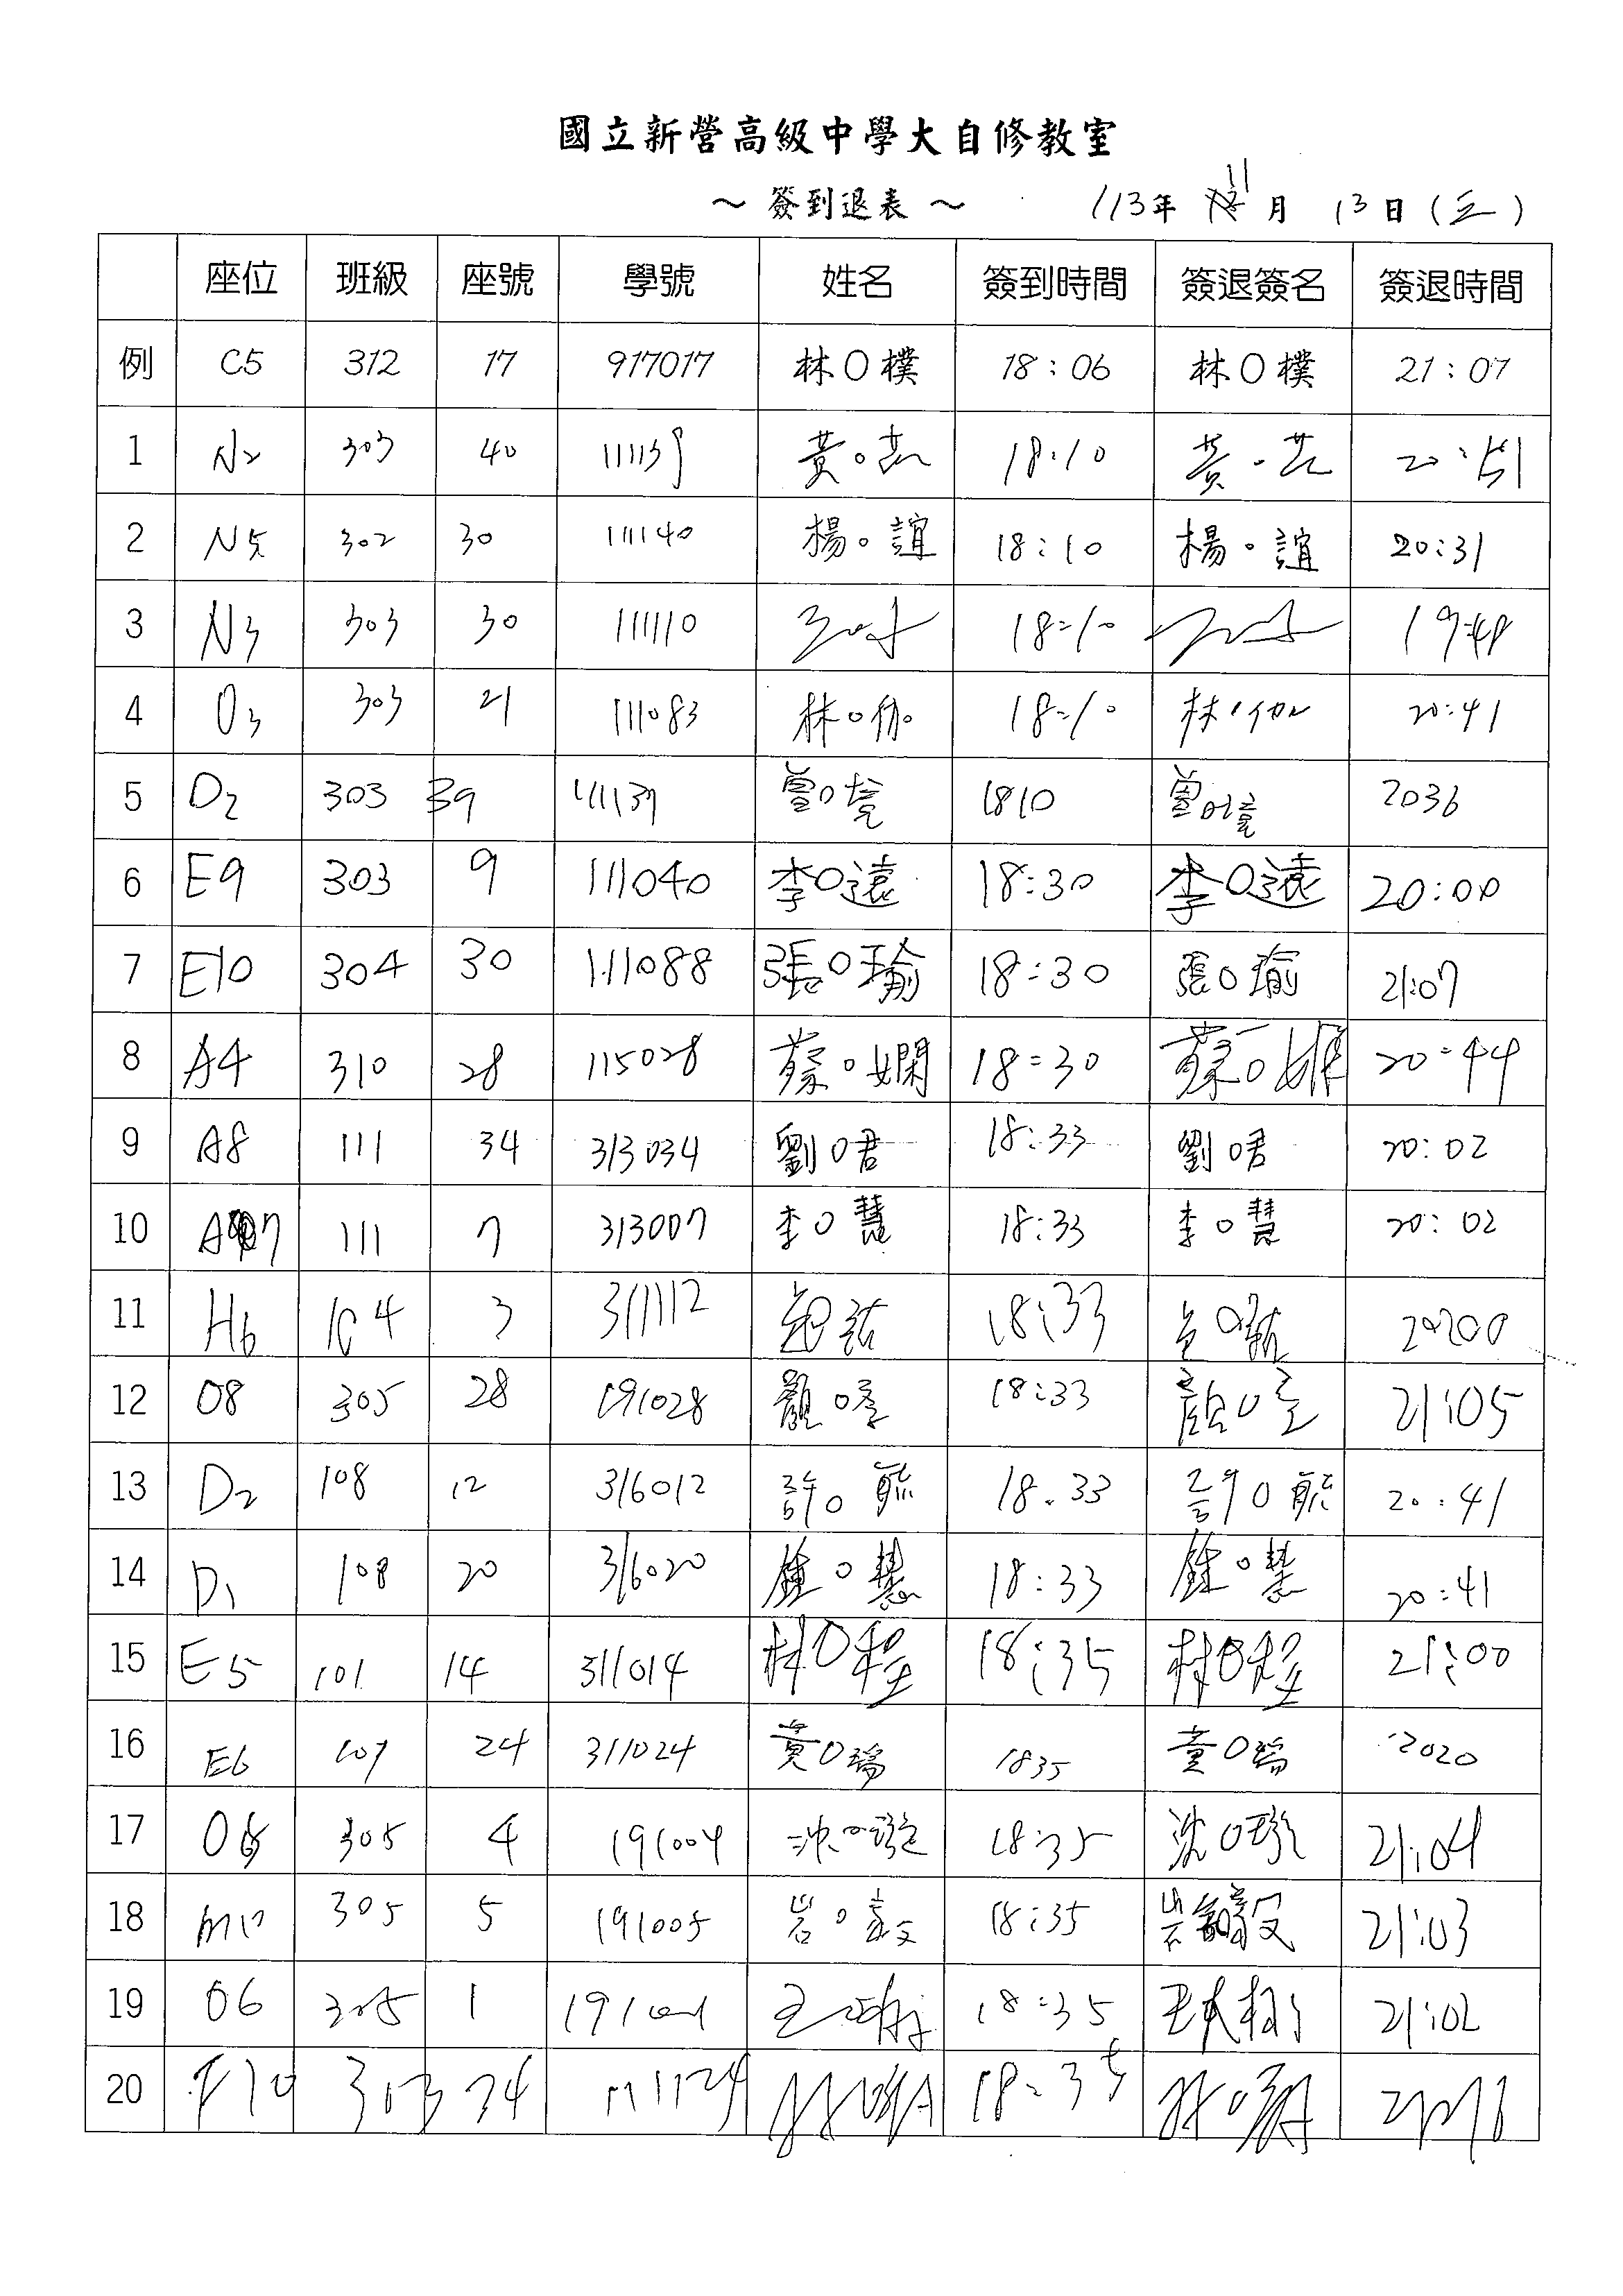 國立新營高級中學大自修教室
～ 簽到退表 ～ 113年 11月 13日 (三)
座位 班級 座號 學號 姓名 簽到時間 簽退簽名 簽退時間
例 C5 312 17 917017 林O樸 18:06 林O樸 21:07
1 N2 303 40 黃O 18:10 黃 20:51
2 N5 302 30 111140 楊O誼 18:10 楊O誼 20:31
3 N3 303 30 111110 18:10 19:48
4 O3 303 21 111083 林O 18:10 林 20:41
5 D2 303 39 111139 曾O 1810 曾O 2036
6 E9 303 9 111040 李O遠 18:30 李O遠 20:00
7 E10 304 30 111088 張O瑜 18:30 張O瑜 21:07
8 A4 310 28 115028 蔡O嫻 18:30 蔡O 20:44
9 A8 111 34 313034 劉O君 18:33 劉O君 20:02
10 A7 111 7 313007 李O慧 18:33 李O慧 20:02
11 H6 104 3 18:33
12 O8 305 28 191028 顏O 18:33 顏O 21:05
13 D2 108 12 316012 許O毓 18:33 許O毓 20:41
14 D1 108 20 316020 鍾O慧 18:33 鍾O慧 20:41
15 E5 101 14 311014 林O程 18:35 林O程 21:00
16 E6 101 24 311024 黃O瑞 1835 黃O瑞 2020
17 305 4 191004 沈O 18:35 沈O 21:04
18 M10 305 5 191005 岩O 18:35 岩 21:03
19 O6 305 1 191001 王O 18:35 王 21:02
20 F10 303 34 111124 林O 18:35 林O